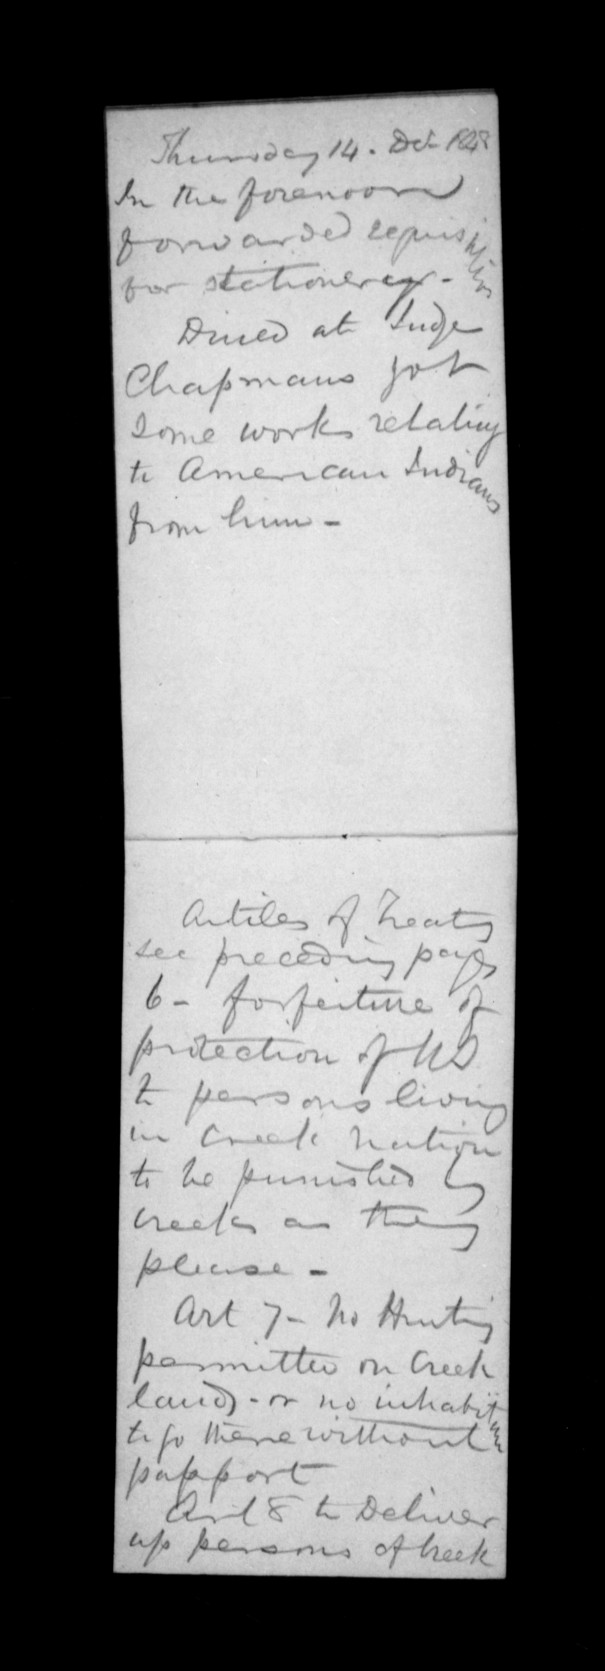 Thursday 14. Dec 1848
In the forenoon
forwarded requisition
for stationery.-
Dined at Judge
Chapmans got
some works relating
to American Indians
from him -
Artiles of Treaty
see preceding pages
6 - forfeiture of
protection of US
to persons living
in Creek Nation
to be punished by
creeks as they
please -
Art 7 - No Hunting
permitted on Creek
lands - or no inhabitan
to go there without
passport
Art 8 to Deliver
up persons of Creek